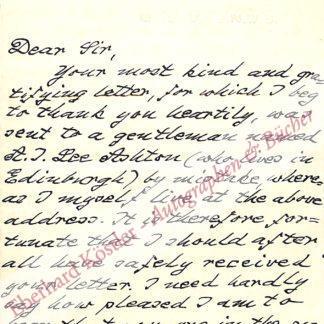 Dear Sir,
Your most kind and gra-
tifying letter, for which I beg
to thank you heartily, was
sent to a gentleman named
A. J. Lee Ashton (who lives in
Edinburgh) by mistake where-
as I myself live at the above
address. It is therefore for-
tunate that I should after
all have safely received
your letter. I need hardly
say how pleased I am to
Eberhard Köstler - Autographen & Bücher